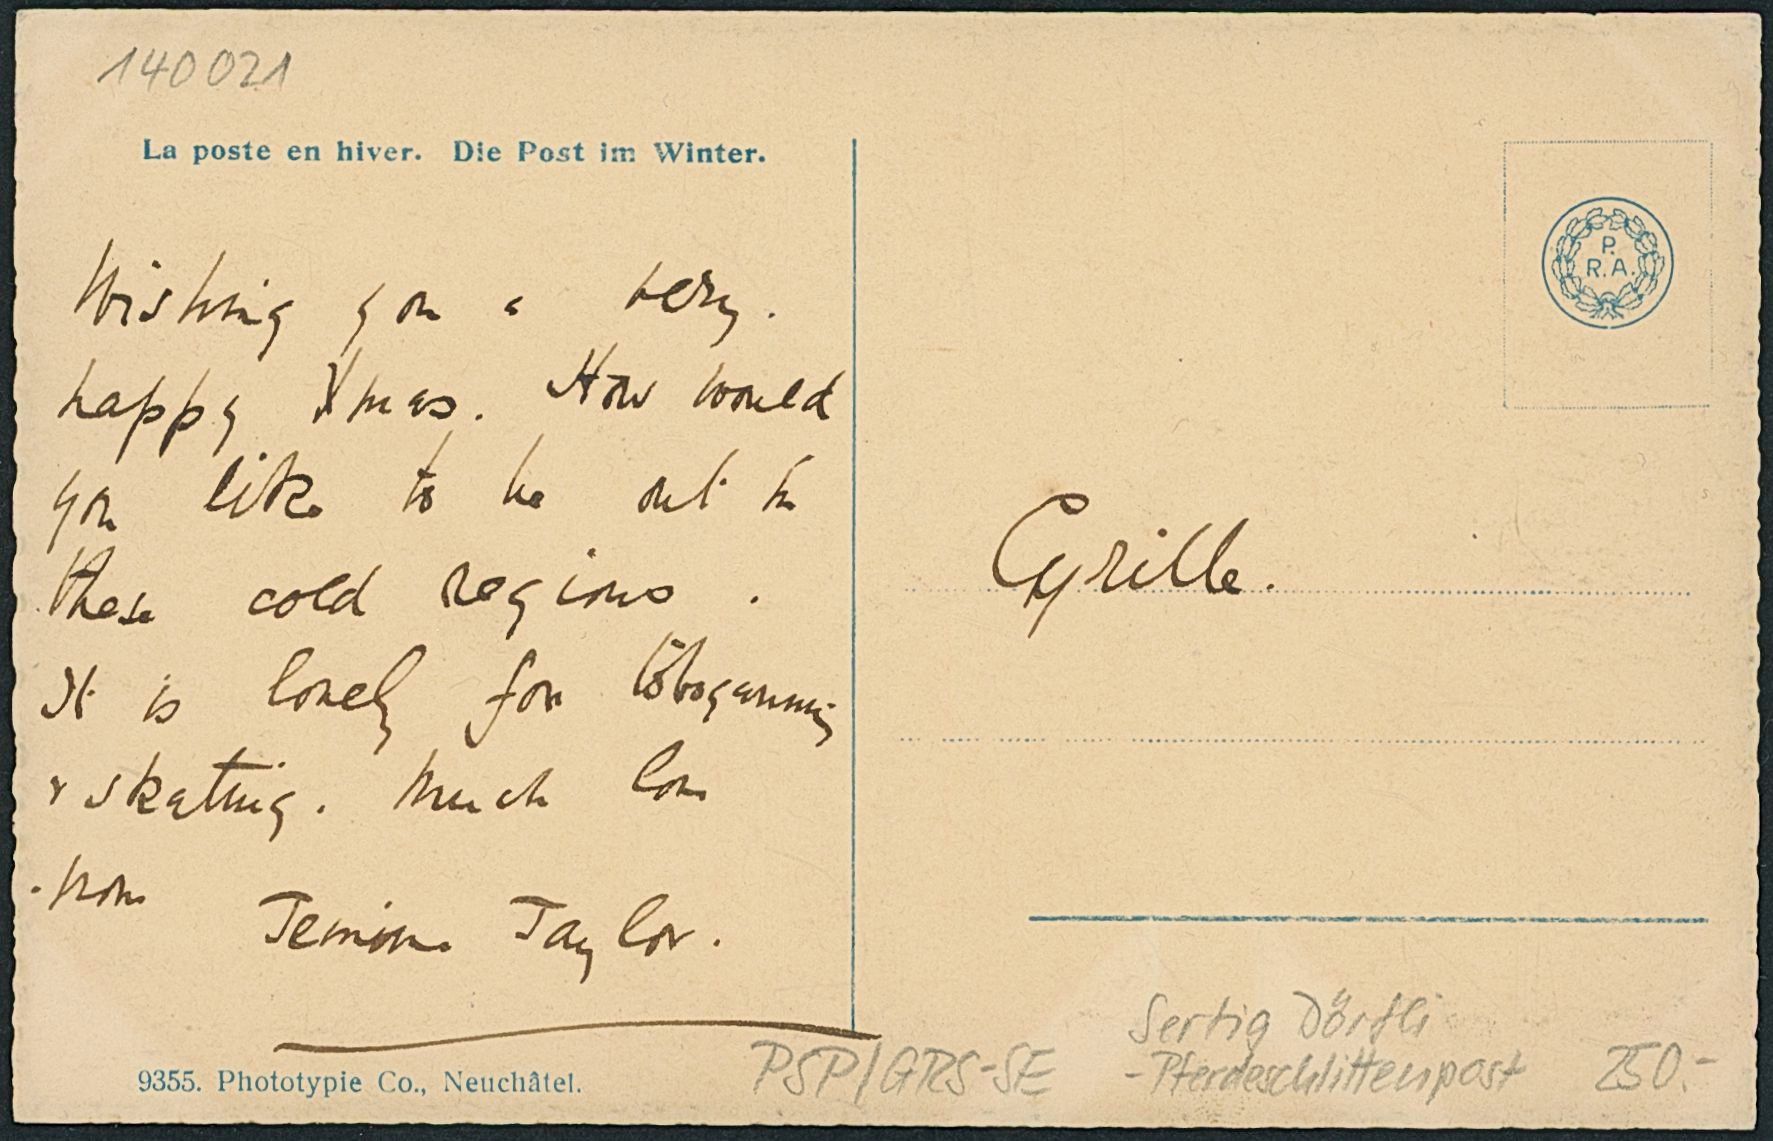 140021
La poste en hiver. Die Post im Winter.
P.
R. A.
Wishing you a very
happy Xmas. How would
you like to be out in
these cold regions.
It is lovely for tobogganing
& skating. Much love
from Jemima Taylor.
Cyrille.
9355. Phototypie Co., Neuchâtel.
PSP/GRS-SE
Sertig Dörfli
-Pferdeschlittenpost
250.-